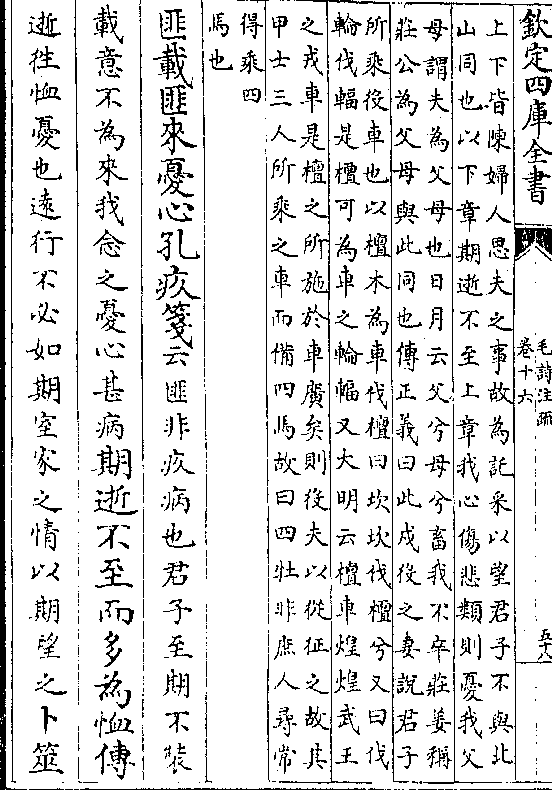 欽定四庫全書
毛詩注疏
卷十六
五十八
上下皆陳婦人思夫之事故為託采以望君子不與北
山同也以下章期逝不至上章我心傷悲類則憂我父
母謂夫為父母也日月云父兮母兮畜我不卒莊姜稱
莊公為父母與此同也傳正義曰此戍役之妻說君子
所乘役車也以檀木為車伐檀曰坎坎伐檀兮又曰伐
輪伐輻是檀可為車之輪輻又大明云檀車煌煌武王
之戎車是檀之所施於車廣矣則役夫以從征之故其
甲士三人所乘之車而備四馬故曰四牡非庶人尋常
得乘四
馬也
匪載匪來憂心孔疚箋云匪非疚病也君子至期不裝
載意不為來我念之憂心甚病期逝不至而多為恤傳
逝徃恤憂也逺行不必如期室家之情以期望之卜筮